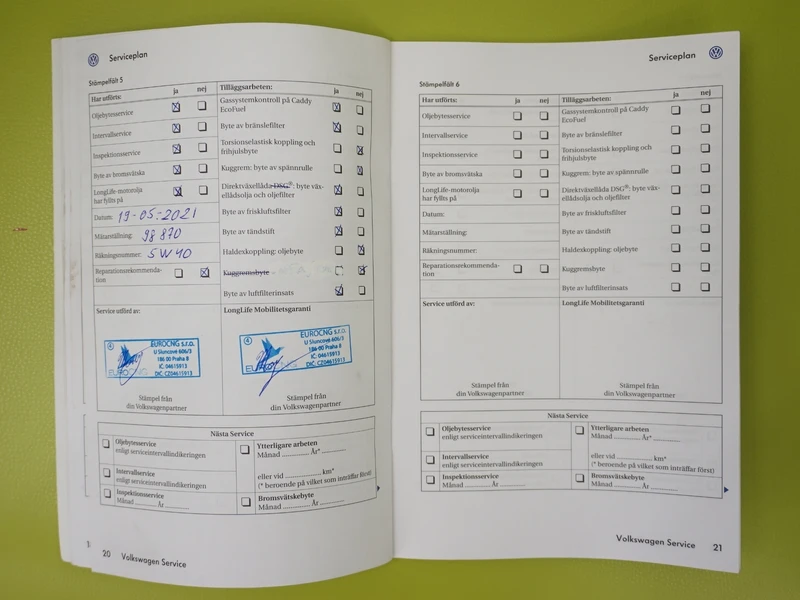 Serviceplan
Stämpelfält 5
Har utförts: ja nej
Oljebytesservice
Intervallservice
Inspektionsservice
Byte av bromsvätska
LongLife-motorolja
har fyllts på
Datum: 19-05-2021
Mätarställning: 98 870
Räkningsnummer: 5W40
Reparationsrekommenda-
tion
Tilläggsarbeten: ja nej
Gassystemkontroll på Caddy
EcoFuel
Byte av bränslefilter
Torsionselastisk koppling och
frihjulsbyte
Kuggrem: byte av spännrulle
Direktväxellåda DSG®: byte väx-
ellådsolja och oljefilter
Byte av friskluftsfilter
Byte av tändstift
Haldexkoppling: oljebyte
Kuggremsbyte
Byte av luftfilterinsats
Service utförd av:
4
EUROCNG s.r.o.
U Sluncové 606/3
186 00 Praha 8
IČ: 04615913
DIČ: CZ04615913
EUROCNG
Stämpel från
din Volkswagenpartner
LongLife Mobilitetsgaranti
4
EUROCNG s.r.o.
U Sluncové 606/3
186 00 Praha 8
IČ: 04615913
DIČ: CZ04615913
Stämpel från
din Volkswagenpartner
Nästa Service
Oljebytesservice
enligt serviceintervallindikeringen
Intervallservice
enligt serviceintervallindikeringen
Inspektionsservice
Månad År
Ytterligare arbeten
Månad År*
eller vid km*
(* beroende på vilket som inträffar först)
Bromsvätskebyte
Månad År
20 Volkswagen Service
Serviceplan
Stämpelfält 6
Har utförts: ja nej
Oljebytesservice
Intervallservice
Inspektionsservice
Byte av bromsvätska
LongLife-motorolja
har fyllts på
Datum:
Mätarställning:
Räkningsnummer:
Reparationsrekommenda-
tion
Tilläggsarbeten: ja nej
Gassystemkontroll på Caddy
EcoFuel
Byte av bränslefilter
Torsionselastisk koppling och
frihjulsbyte
Kuggrem: byte av spännrulle
Direktväxellåda DSG®: byte väx-
ellådsolja och oljefilter
Byte av friskluftsfilter
Byte av tändstift
Haldexkoppling: oljebyte
Kuggremsbyte
Byte av luftfilterinsats
Service utförd av:
Stämpel från
din Volkswagenpartner
LongLife Mobilitetsgaranti
Stämpel från
din Volkswagenpartner
Nästa Service
Oljebytesservice
enligt serviceintervallindikeringen
Intervallservice
enligt serviceintervallindikeringen
Inspektionsservice
Månad År
Ytterligare arbeten
Månad År*
eller vid km*
(* beroende på vilket som inträffar först)
Bromsvätskebyte
Månad År
Volkswagen Service 21